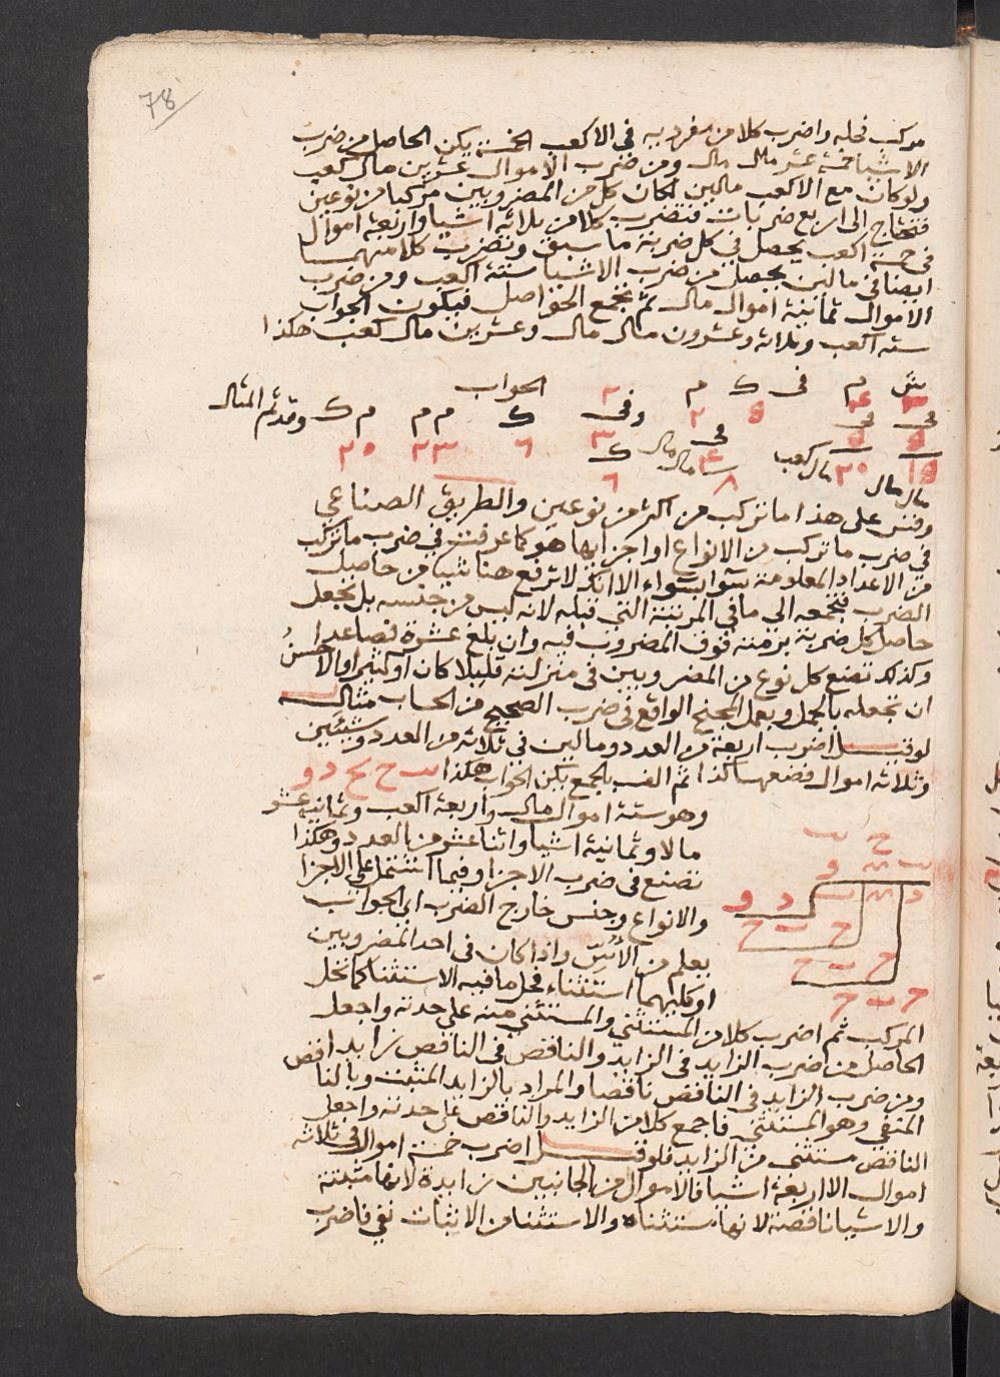 78
مركب فحله واضرب كلا من مفرديه فى الاكعب الخمسة يكن الحاصل من ضرب
الاشيا خمسة عشر مال مال ومن ضرب الاموال عشرين مال كعب
ولو كان مع الاكعب مالين لكان كل من المضروبين مركبا من نوعين
فتحتاج الى اربع ضربات فتضرب كلا من ثلاثة اشيا واربعة اموال
فى خمسة اكعب يحصل فى كل ضربة ما سبق وتضرب كلا منهما
ايضا فى مالين يحصل من ضرب الاشيا ستة اكعب ومن ضرب
الاموال ثمانية اموال مال ثم تجمع الحواصل فيكون الجواب
ستة اكعب وثلاثة وعشرون مال مال وعشرين مال كعب هكذا
ش م فى ك م الجواب
٣ ٤ ٥ ٢ ٢
فى فى فى وفى ك م م م ك وقد تم المثال
٥ ٥ ٤ ٣ ٦ ٢٣ ٢٠
١٥ مال مال ٢٠ مال كعب ٨ مال مال ك ٦
وقس على هذا ما تركب من اكثر من نوعين والطريق الصناعي
في ضرب ما تركب من الانواع او اجزايها هو كما عرفت في ضرب ما تركب
من الاعداد المعلومة سوا بسواء الا انك لا ترفع هنا شيا من حاصل
الضرب فتجمعه الى ما في المرتبة التي قبله لانه ليس من جنسه بل تجعل
حاصل كل ضربة برمته فوق المضروب فيه وان بلغ عشرة فصاعدا
وكذلك تضع كل نوع من المضروبين فى منزلته قليلا كان او كثيرا والاحسن
ان تجعله بالجمل وبعمل المجنح الواقع في ضرب الصحيح من الحساب مثاله
لو قيل اضرب اربعة من العدد ومالين في ثلاثة من العدد وشيئين
وثلاثة اموال فضعها كذا ثم اضرب واجمع يكن الجواب هكذا
وهو ستة اموال مال واربعة اكعب وثمانية عشر
مالا وثمانية اشيا واثنا عشر من العدد وهكذا
تصنع فى ضرب الاجزا وفيما اشتمل على الاجزا
والانواع وجنس خارج الضرب اي الجواب
يعلم من الأُسّ واذا كان فى احد المضروبين
او كليهما استثناء فحل ما فيه الاستثنا كما تحل
المركب ثم اضرب كلا من المستثني والمستثني منه على حدته واجعل
الحاصل من ضرب الزايد في الزايد والناقص في الناقص زايدا
ومن ضرب الزايد في الناقص ناقصا والمراد بالزايد المثبت وبالناقص
المنفي وهو المستثني فاجمع كلا من الزايد والناقص على حدته واجعل
الناقص مستثنى من الزايد فلو قيل اضرب خمسة اموال في ثلاثة
اموال الا اربعة اشيا فالاموال من الجانبين زايدة لانها مثبتة
والاشيا ناقصة لانها مستثناه والاستثنا من الاثبات نفي فاضرب